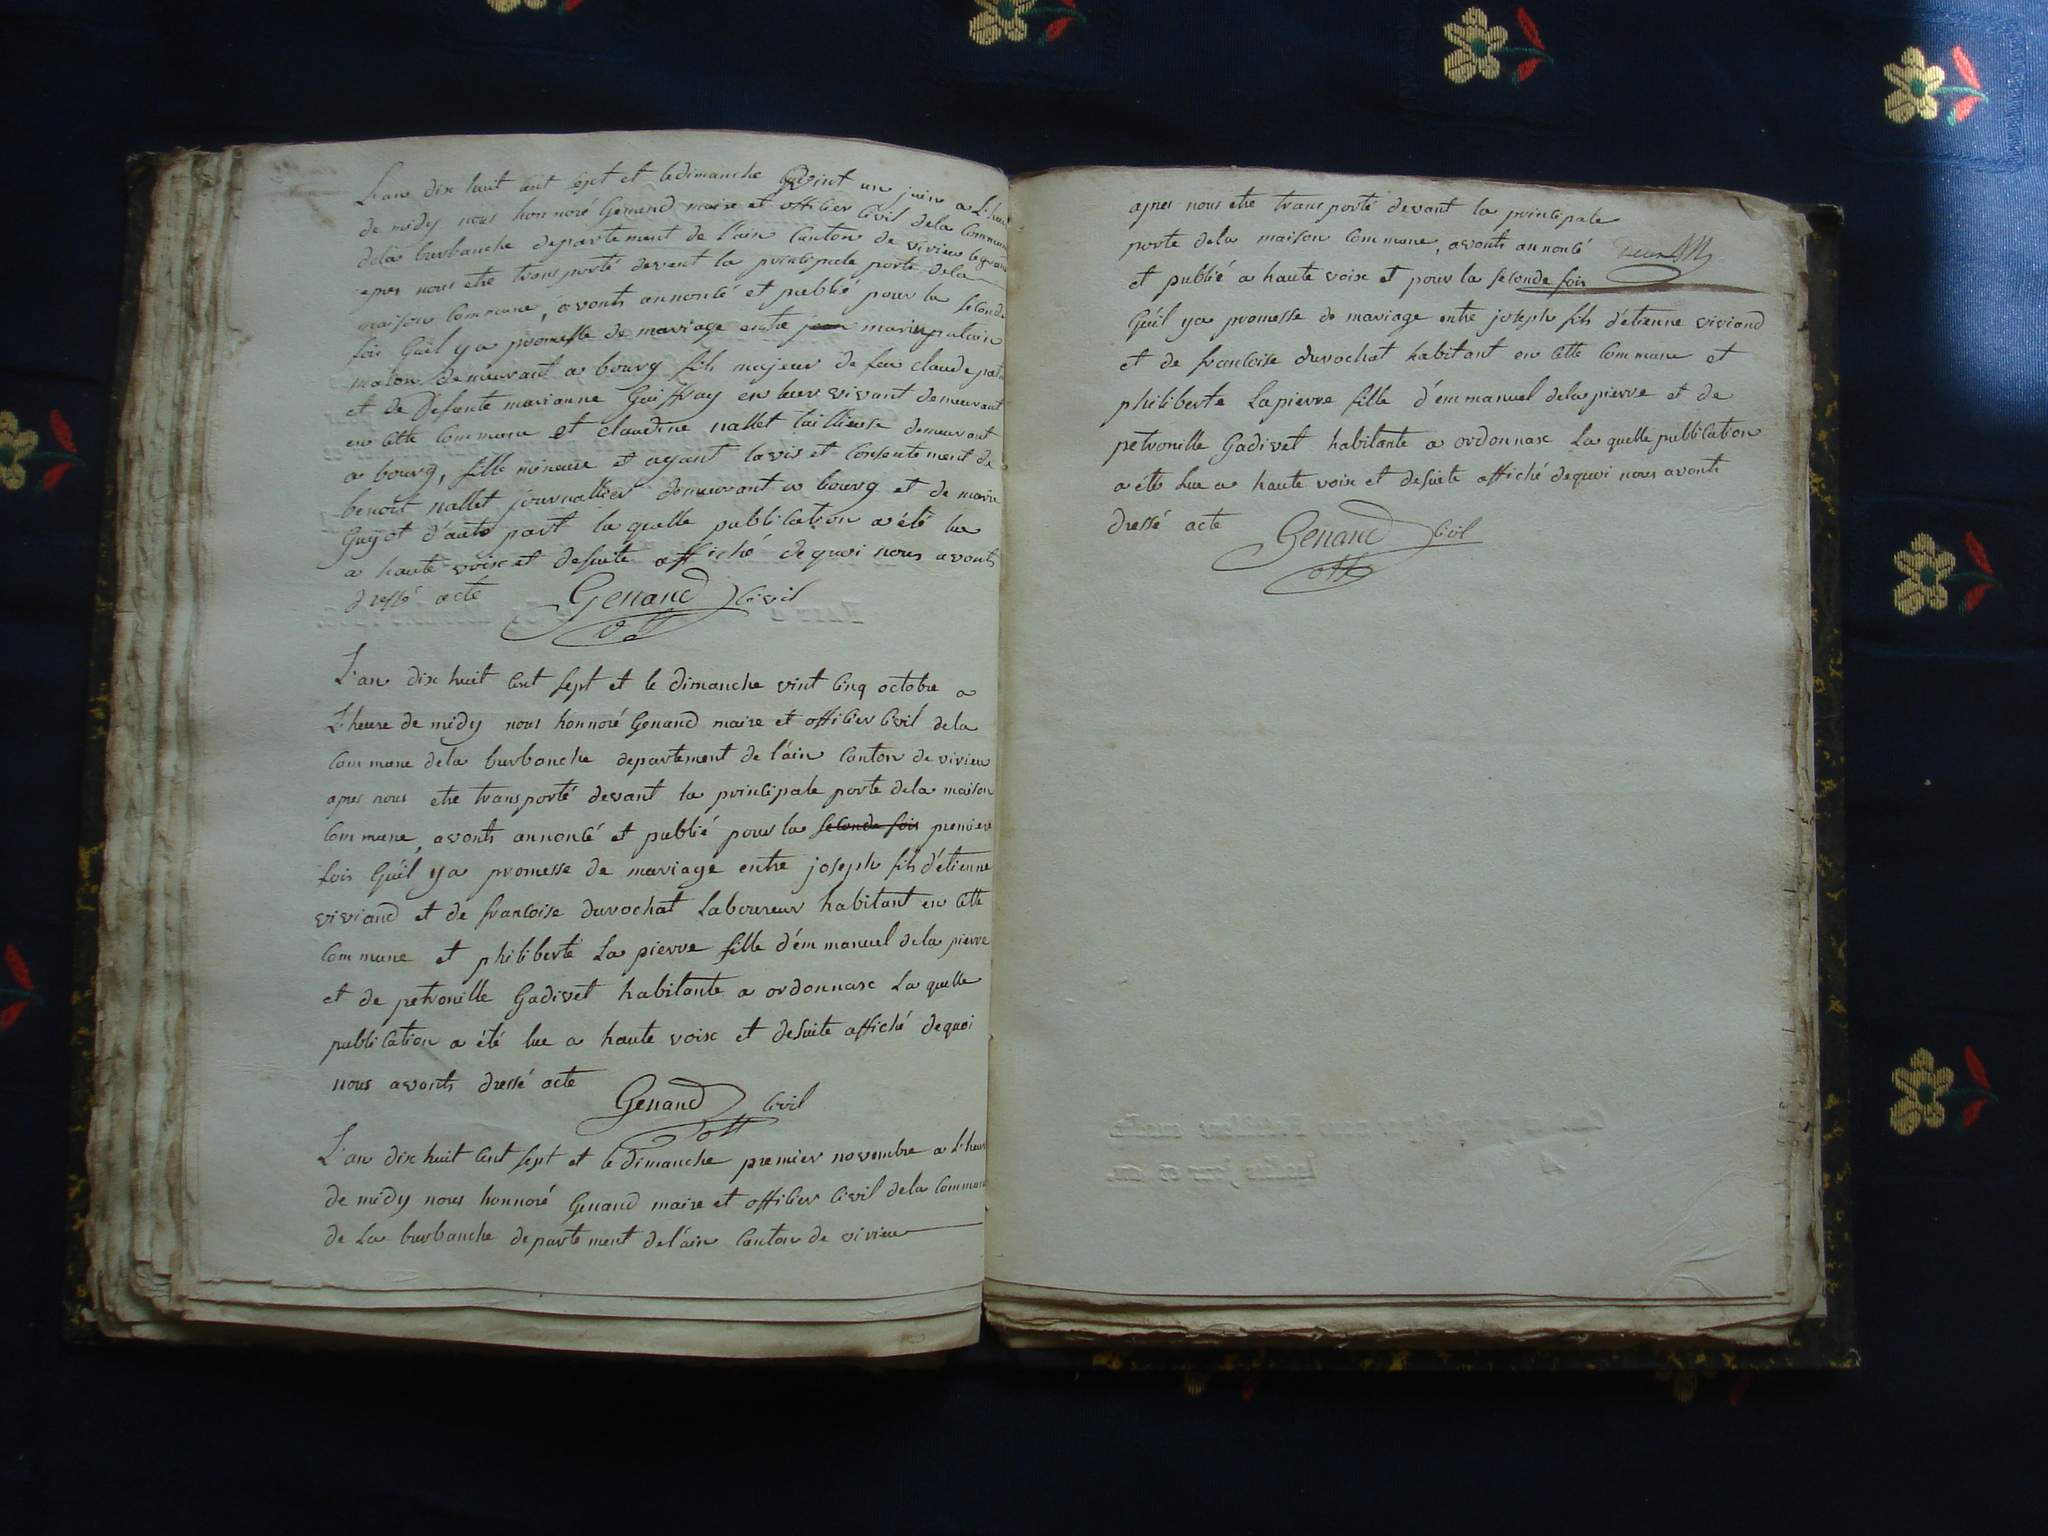 L'an dix huit cent sept et le dimanche vint un juin a L'heure
de midy nous honnoré Genand maire et officier Civil dela Commune
dela burbanche departement de l'ain Canton de virieu le grand
apres nous etre transporté devant la principale porte dela
maison Commune, avonts annoncé et publié pour la seconde
fois Qu'il ya promesse de mariage entre marin
maton demeurant a bourg fils majeur de feu claude
et de Defunte marianne Guiffray en leur vivant demeurant
en cette Commune et claudine nallet taillieuse demeurant
a bourg, fille mineure et ayant lavis et Consentement de
benoit nallet journallier demeurant a bourg et de marie
Guyot d'autre part la quelle publication a été lue
a haute voix et desuite affiché dequoi nous avonts
dressé acte Genand Civil
off
L'an dix huit cent sept et le dimanche vint cinq octobre a
L'heure de midy nous honnoré Genand maire et officier Civil dela
Commune dela burbanche departement de l'ain Canton de virieu
apres nous etre transporté devant la principale porte dela maison
Commune, avonts annoncé et publié pour la seconde fois premiere
fois Qu'il ya promesse de mariage entre joseph fils d'étienne
viviand et de francoise durochat Laboureur habitant en cette
Commune et philiberte La pierre fille d'émmanuel dela pierre
et de petronille Gadivet habitante a ordonnase La quelle
publication a été lue a haute voix et desuite affiché dequoi
nous avonts dressé acte Genand Civil
off
L'an dix huit cent sept et le dimanche premier novembre a L'heure
de midy nous honnoré Genand maire et officier Civil dela Commune
de La burbanche departement de l'ain Canton de virieu
apres nous etre transporté devant la principale
porte dela maison Commune, avonts annoncé
et publié a haute voix et pour la seconde fois
Qu'il ya promesse de mariage entre joseph fils d'étienne viviand
et de francoise durochat habitant en cette Commune et
philiberte Lapierre fille d'émmanuel dela pierre et de
petronille Gadivet habitante a ordonnase La quelle publication
a été lue a haute voix et desuite affiché dequoi nous avonts
dressé acte Genand Civil
off